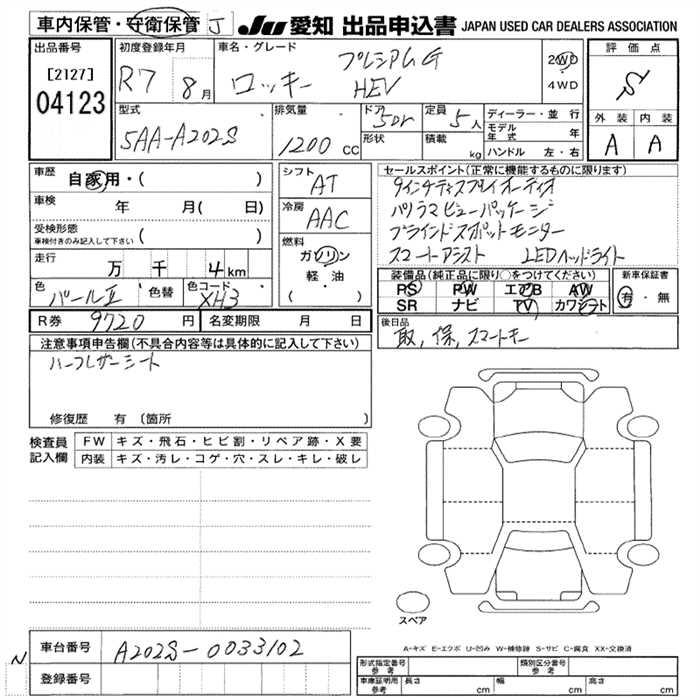 車内保管・守衛保管 J
JU 愛知 出品申込書 JAPAN USED CAR DEALERS ASSOCIATION
出品番号
[2127]
04123
初度登録年月
R7 8月
車名・グレード
ロッキー プレミアムG HEV
2WD
4WD
評価点
S
外装 内装
A A
型式
5AA-A202S
排気量
1200 cc
ドア
5Dr
形状
定員
5人
積載
kg
ディーラー・並行
モデル年式 年
ハンドル 左・右
車歴
自家用・( )
車検
年 月( 日)
受検形態
車検付きのみ記入して下さい ( )
走行
万 千 4km
色
パールⅡ
色替
色コード
XH3
シフト
AT
冷房
AAC
燃料
ガソリン
軽・油
( ・ )
セールスポイント(正常に機能するものに限ります)
9インチディスプレイオーディオ
パノラマビューパッケージ
ブラインドスポットモニター
スマートアシスト LEDヘッドライト
装備品(純正品に限り○をつけてください)
RS PW エアB AW
SR ナビ TV カワシート
新車保証書
有・無
R券 9720 円
名変期限 月 日
後日品
取，保，スマートキー
注意事項申告欄(不具合内容等は具体的に記入して下さい)
ハーフレザーシート
修復歴 有 〔箇所 〕
検査員記入欄
FW キズ・飛石・ヒビ割・リペア跡・X要
内装 キズ・汚レ・コゲ・穴・スレ・キレ・破レ
スペア
A-キズ E-エクボ U-凹み W-補修跡 S-サビ C-腐食 XX-交換済
N
車台番号 A202S-0033102
登録番号
形式指定番号 参考
類別区分番号 参考
車庫証明用 参考
長さ cm 幅 cm 高さ cm